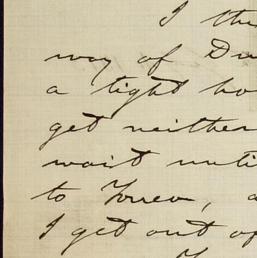 I the
way of Du
a tight ho
get neither
wait unti
to
I get out of